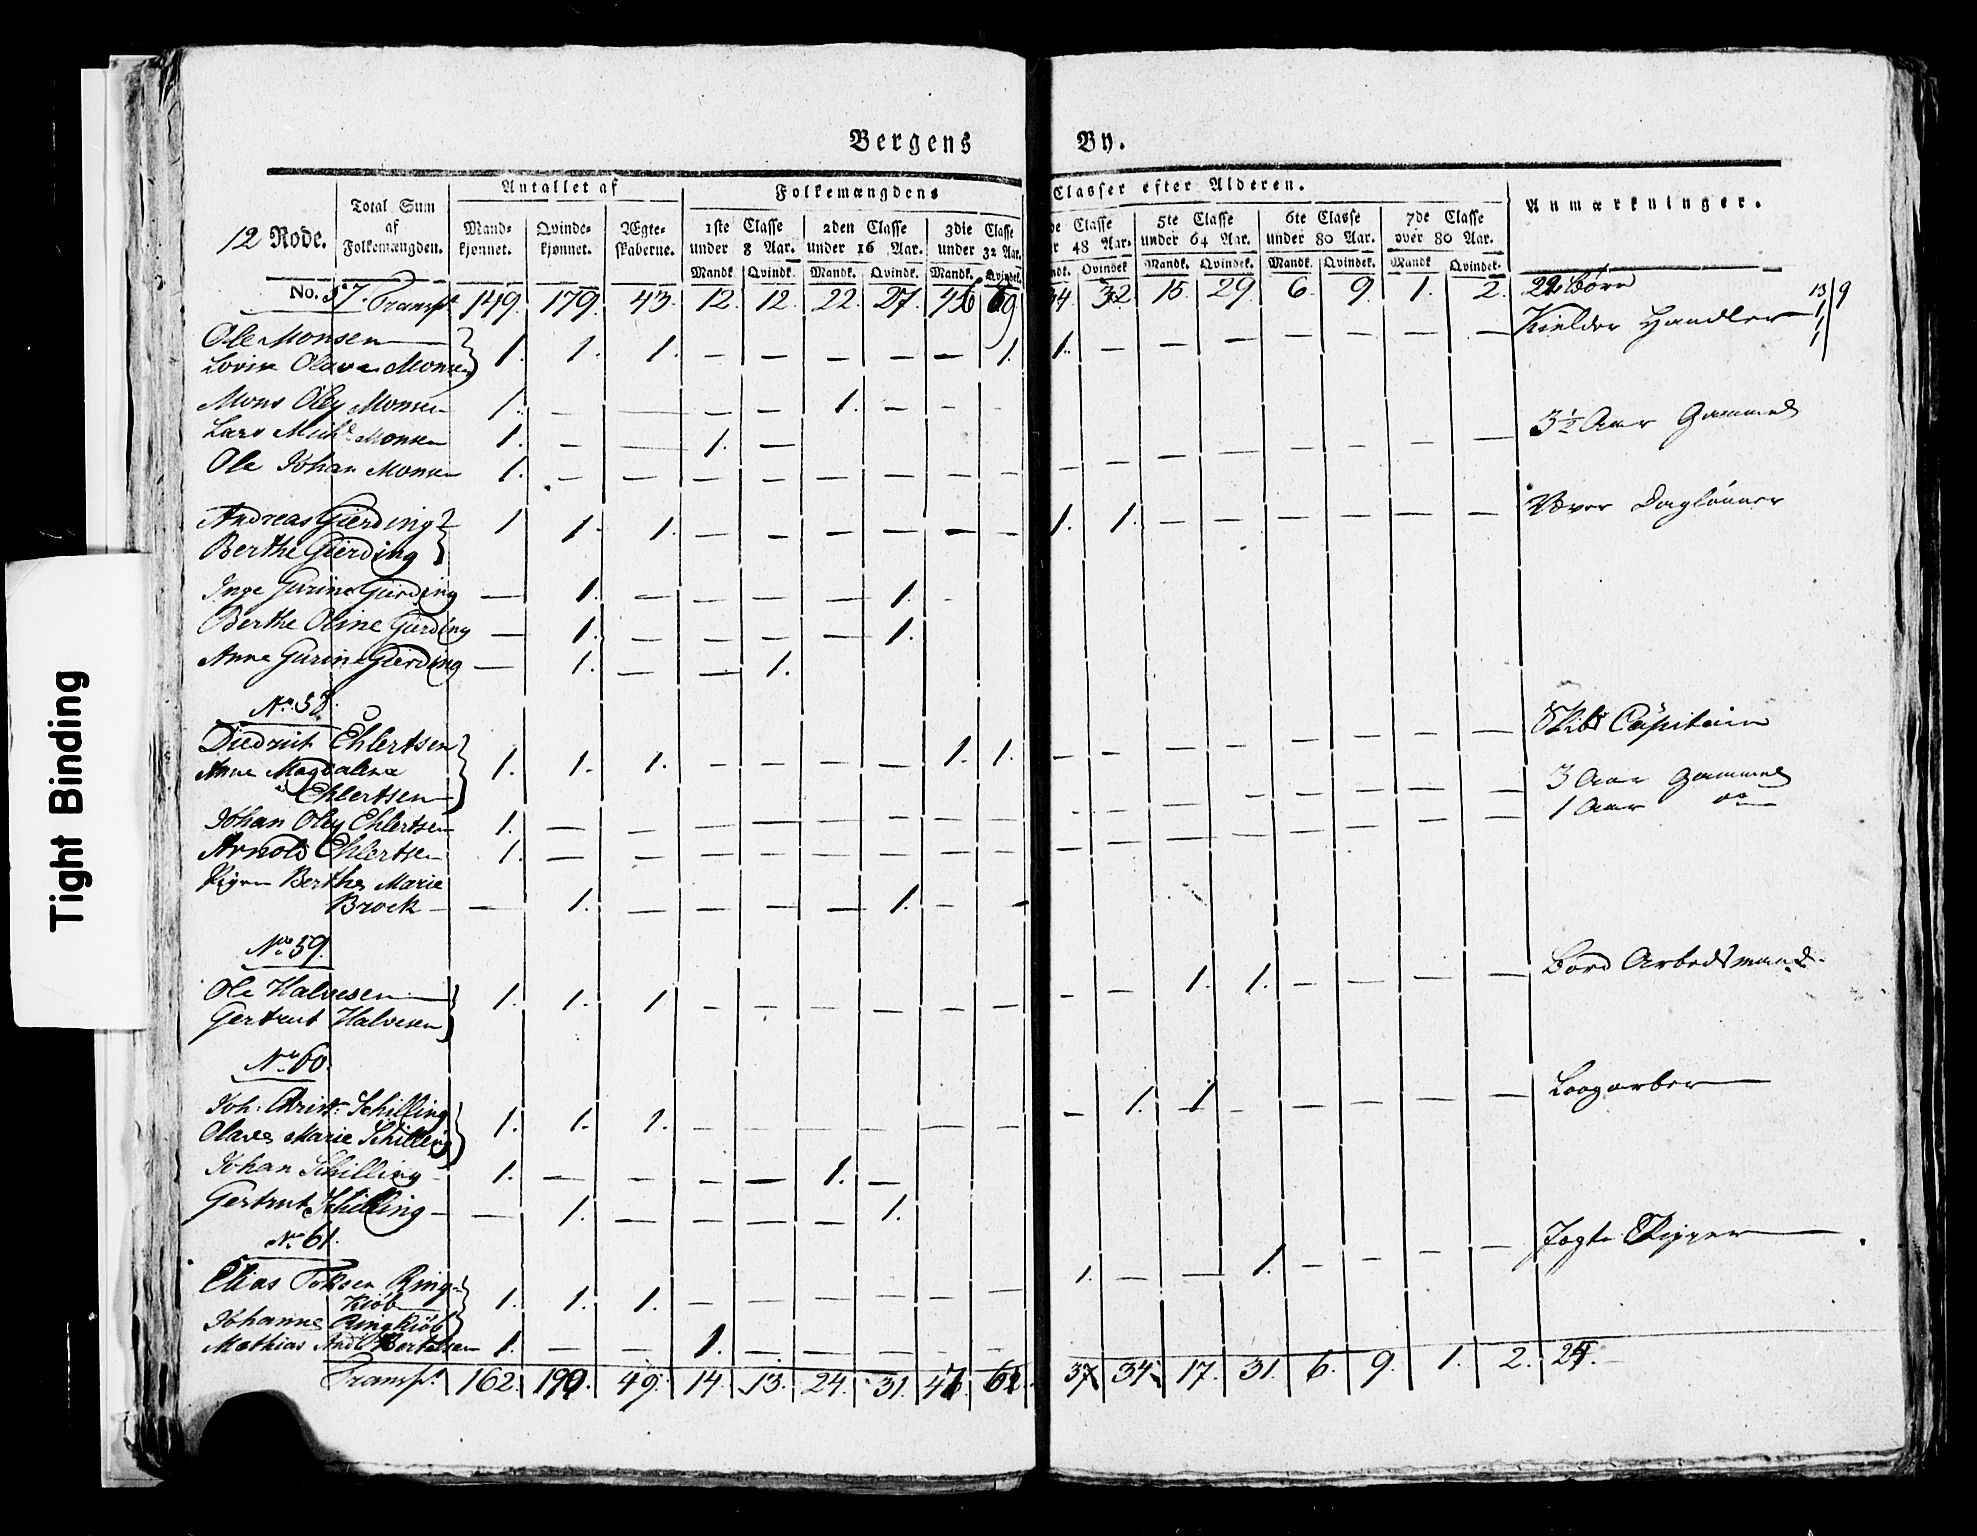 Bergens By.
12 Rode.
Total Sum af Folkemængden.
Antallet af
Mandkjønnet. Qvindekjønnet. Ægteskaberne.
Folkemængdens Classer efter Alderen.
1ste Classe under 8 Aar. 2den Classe under 16 Aar. 3die Classe under 32 Aar. 48 Aar. 5te Classe under 64 Aar. 6te Classe under 80 Aar. 7de Classe over 80 Aar.
Anmærkninger.
Mandk. Qvindek. Mandk. Qvindek. Mandk. Qvindek. Qvindek. Mandk. Qvindek. Mandk. Qvindek. Mandk. Qvindek.
No. 57 Transpt. 149. 179. 43. 12. 12. 22. 27. 34 32. 15. 29. 6. 9. 1. 2. Børn
Ole Monsen } 1. 1. 1. — — — — — 1. 1. — — — — — — — Kielder Handler
Olava Monsen
Mons Oley Monsen 1. — — — — 1. — — —
Lars Michl. Monsen 1. — — 1. — 3½ Aar Gammel
Ole Johan Monsen 1. — — — — — — — — — — — — — — — —
Andreas Gierding } 1 1. 1. — — — — — — 1. 1. — — — — — — Væver Daglønner
Berthe Gierding
Inge Gurine Gierding — 1. — — — — 1. —
Berthe Oline Gierding — 1. — — — — 1.
Anne Gurine Gierding — 1. — — 1.
No. 58.
Diedrich Ehlertsen } 1. 1. 1. — — — — 1. 1. — — — — — — — — Skibs Capitain
Anne Magdalena
Ehlertsen
Johan Oley Ehlertsen 1. — — — — — — — — — — — — — — — — 3 Aar Gammel
Arnold Ehlertsen 1. — — — — — — — — — — — — — — — — 1 Aar do
Pigen Berthe Marie
Brock — 1. — — — — 1. — —
No. 59.
Ole Halvesen } 1. 1. 1 — — — — — — — — 1. 1. — — — — Bord Arbeidsmand.
Gertrut Halvesen
No. 60.
Joh: Christ. Schilling } 1. 1. 1. — — — — — — — 1. 1 — — — — —
Olave Marie Schilling
Johan Schilling 1. — — — — 1. —
Gertrut Schilling — 1. — — — — 1.
No. 61.
Elias Toksen Ring- } 1. 1. 1. — — — — — — 1. — — 1. — — — — Jagte Skipper
kiøb
Johanne Ringkiøb
Mathias Andr. Bertelsen 1. — — 1. — — — — —
Transpt. 162. 190. 49. 14. 13. 24. 31. 37 34. 17. 31. 6. 9. 1. 2.
Tight Binding